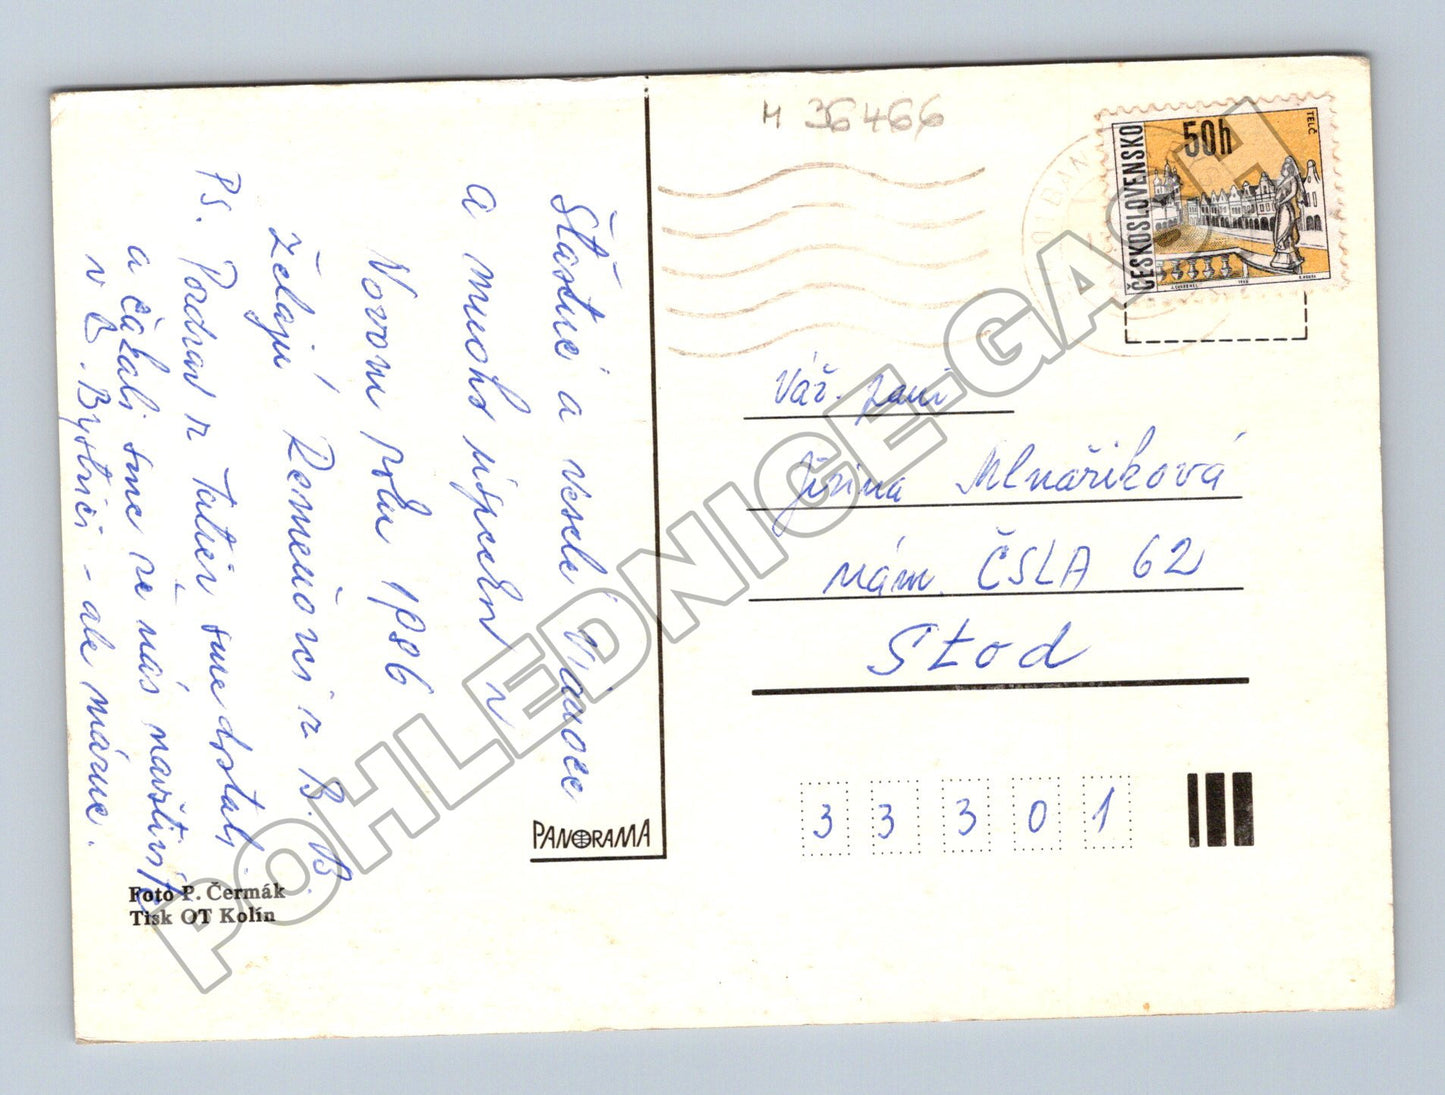 Šťastné a veselé Vianoce
a mnoho úspechov v
Novom roku 1986
želajú Demeňovci z B. B.
PS. Pozdrav z Tatier sme dostali
a čakali sme že nás navštívite
v B. Bystrici - ale márne.
PANORAMA
Foto P. Čermák
Tisk OT Kolín
M 36466
ČESKOSLOVENSKO
50h
TELČ
Váž. paní
Jiřina Mlnaříková
nám. ČSLA 62
Stod
3 3 3 0 1
POHLEDNICE-GASH